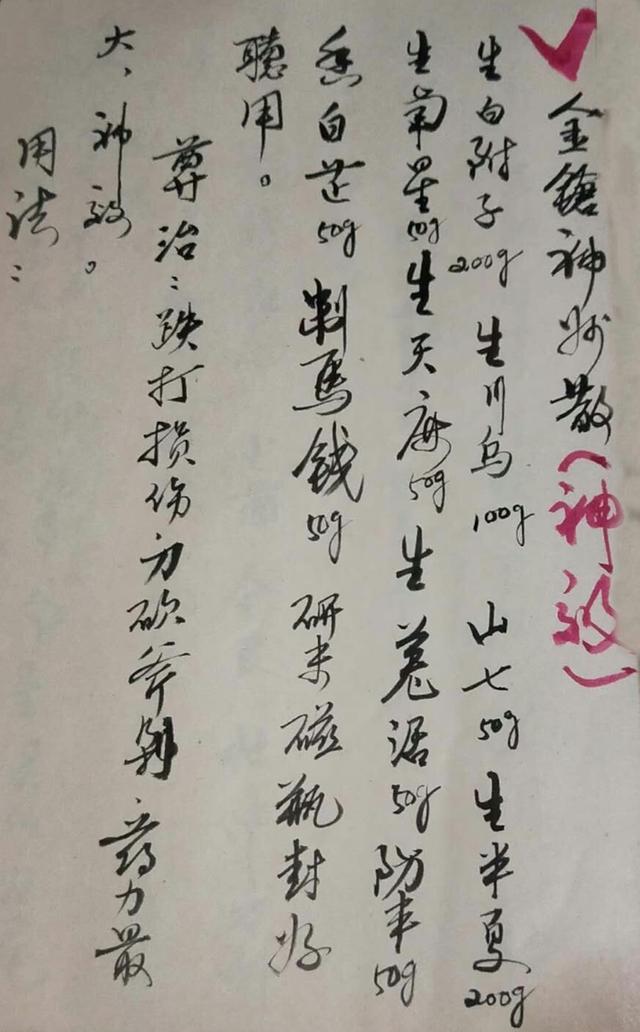 金鎗神妙散（神效）
生白附子200g 生川乌100g 山七50g 生半夏200g
生南星50g 生天麻50g 生羌活50g 防丰50g
香白芷50g 制馬钱50g 研末磁瓶封好
聽用。
專治：跌打损伤刀砍斧剁、药力最
大、神效。
用法：